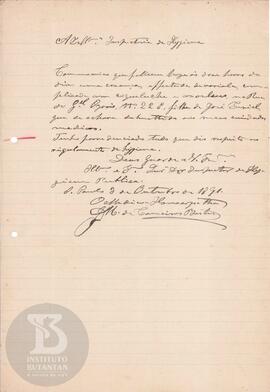 Illmº Inspetoria de Hygiene
Communico que falleceu hoje ás doze horas do
dia uma creança affectada de variola com-
plicada com coqueluche e residente na Rua
do Gal. Ozorio Nº 22 B, filha de José
que se achava debaixo de meus cuidados
medicos.
Tenho providenciado tudo que diz respeito ao
regulamento de hygiene.
Deus Guarde a V. Exª
Illmº e Exº Snr Dr Inspector de Hy-
giene Publica.
S. Paulo 3 de Outubro de 1891.
M. de
INSTITUTO
BUTANTAN